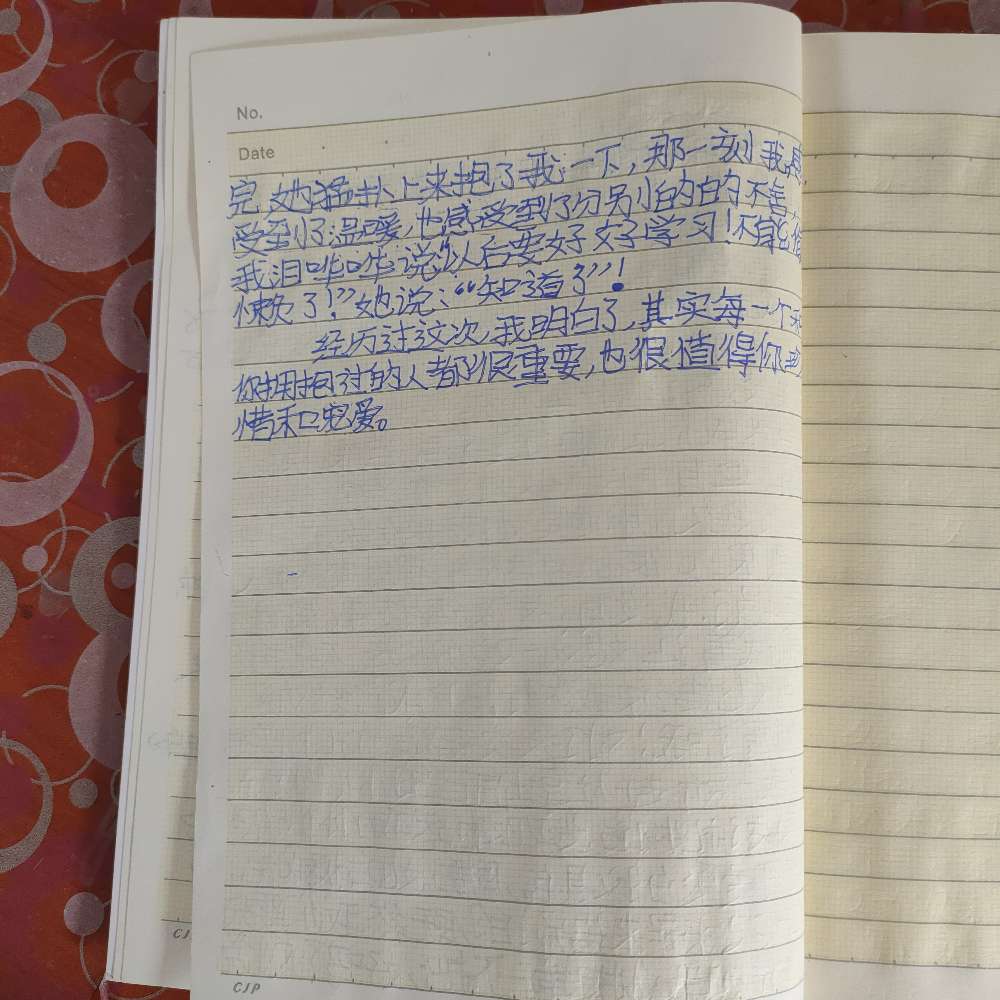 No.
Date
完她猛扑上来抱了我一下,那一刻我感
受到了温暖,也感受到了分别的时的不善,
我泪哗哗说“以后要好好学习!不能偷
懒了!”她说:“知道了”!
经历过这次,我明白了,其实每一个和
你拥抱过的人都很重要,也很值得你
惜和宠爱。
CJP
CJ